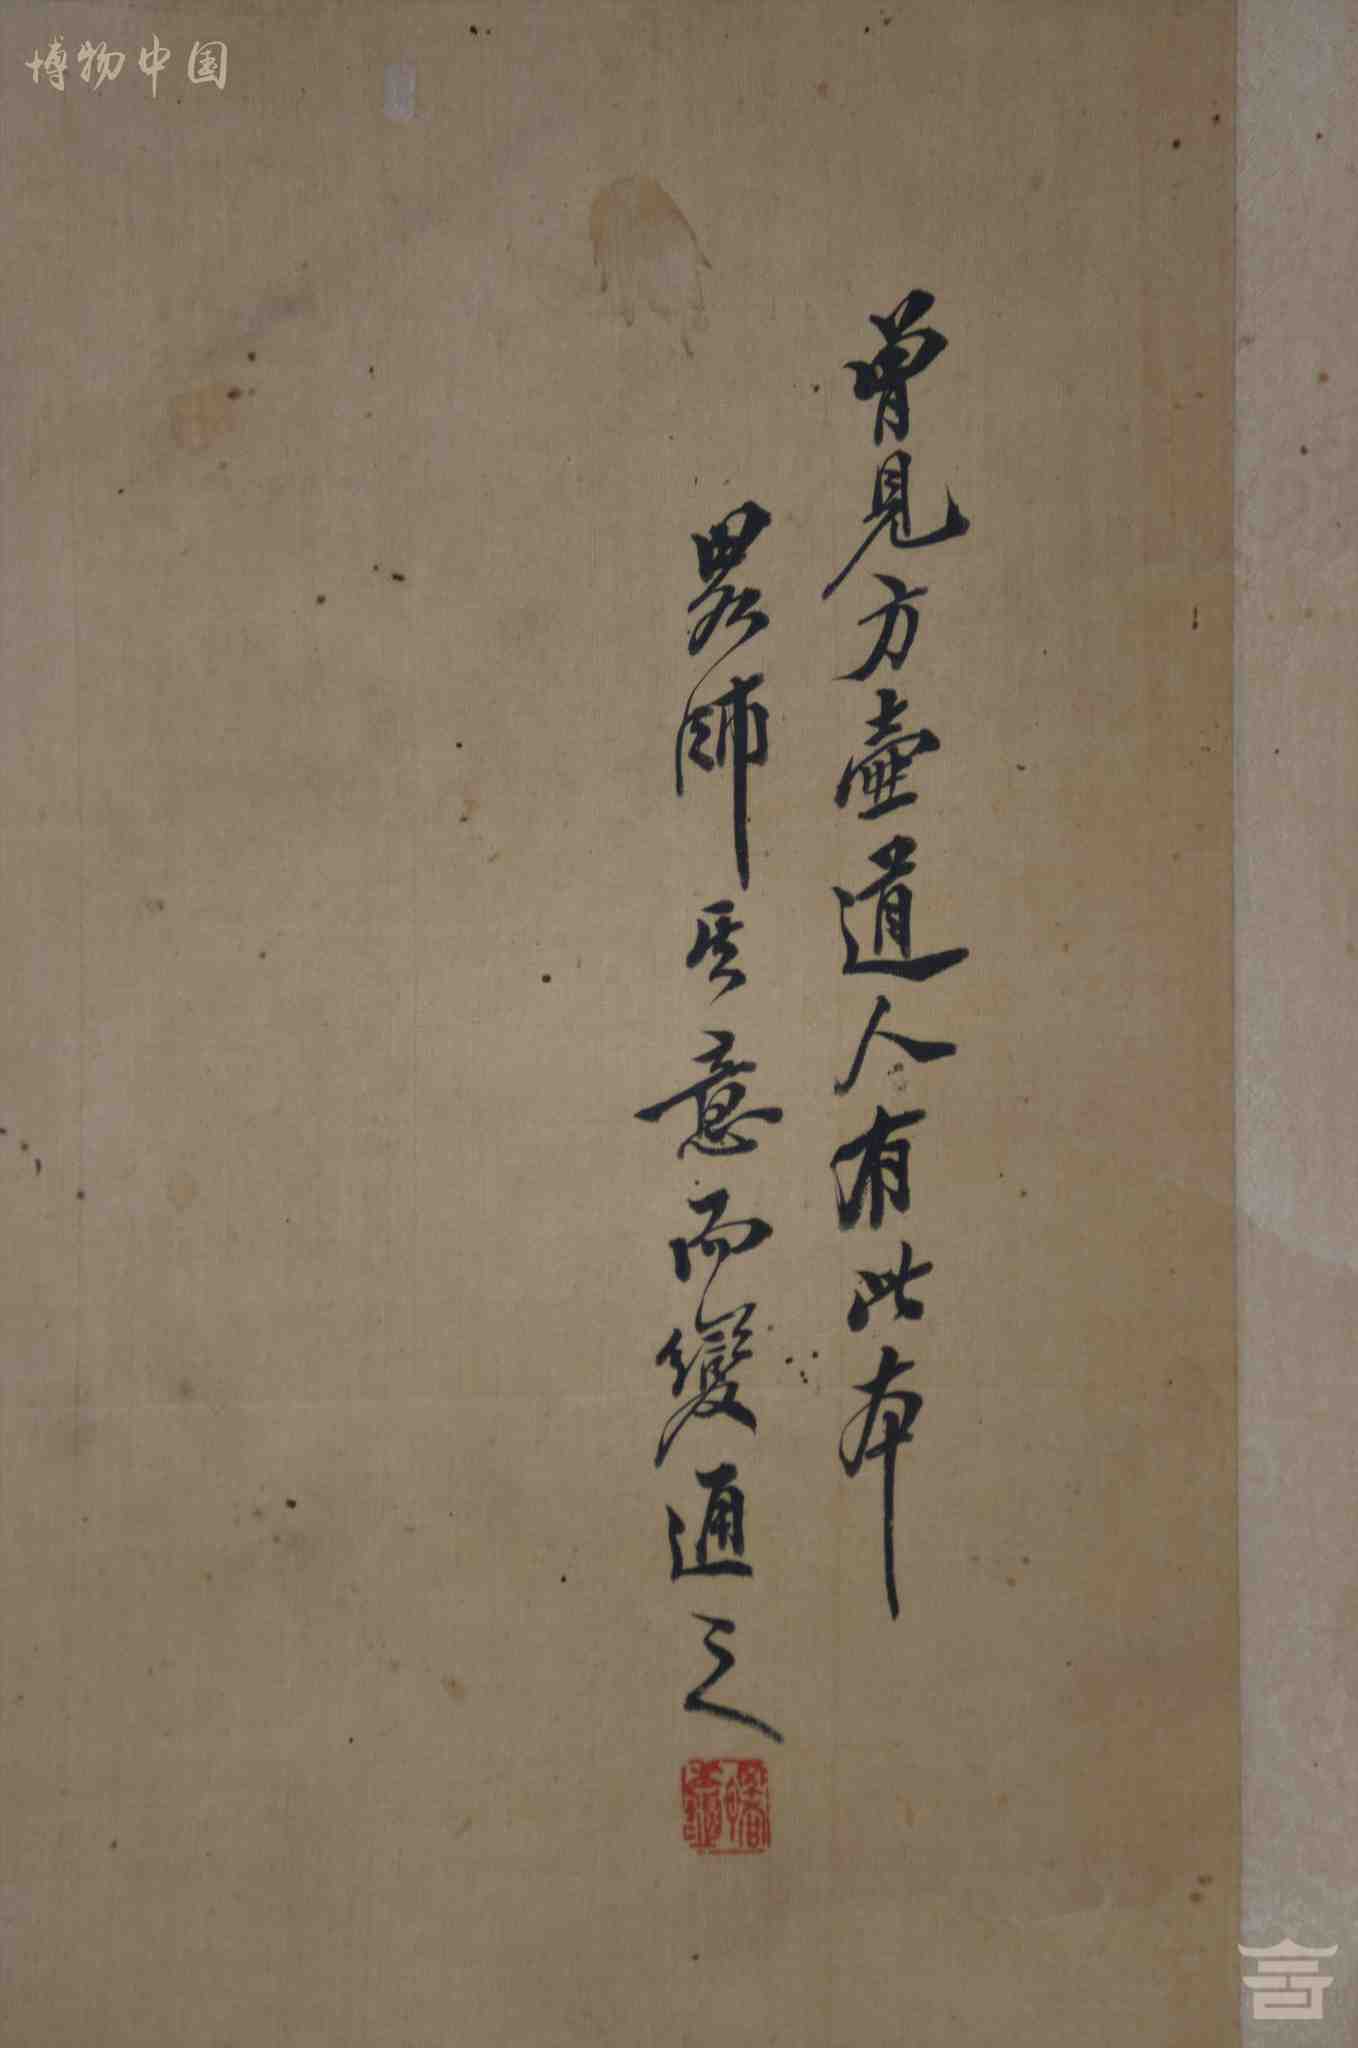 博物中国
曾見方壺道人有此本
畧師其意而變通之